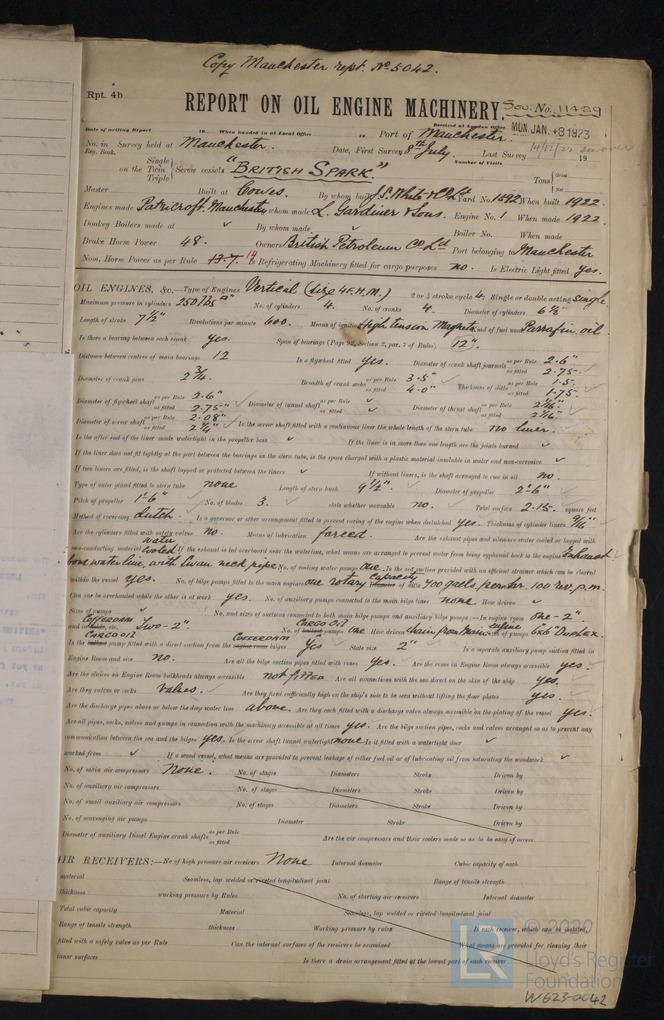 Copy Manchester rept. No 5042.
Rpt. 4b
REPORT ON OIL ENGINE MACHINERY. Sou. No. 11489
Date of writing Report 19 When handed in at Local Office 19 Port of Manchester. Received at London Office MON. JAN. -8 1923
No. in Survey held at Manchester Date, First Survey 8th July. Last Survey 19
Reg. Book. Number of Visits
Single
on the Twin Screw vessels "BRITISH SPARK." Tons Gross
Triple Net
Master Built at Cowes. By whom built J. S. White & Co Ld Yard No. 1592 When built 1922.
Engines made Patricroft. Manchester By whom made L. Gardiner & Sons. Engine No. 1 When made 1922
Donkey Boilers made at By whom made Boiler No. When made
Brake Horse Power 48. Owners British Petroleum Co Ld Port belonging to Manchester
Nom. Horse Power as per Rule 13.7 14 Is Refrigerating Machinery fitted for cargo purposes no. Is Electric Light fitted yes.
OIL ENGINES, &c.—Type of Engines Vertical (size 4F.H.M.) 2 or 4 stroke cycle 4. Single or double acting single
Maximum pressure in cylinders 250 lbs □" No. of cylinders 4. No. of cranks 4 Diameter of cylinders 6½"
Length of stroke 7½" Revolutions per minute 600. Means of ignition High tension Magneto Kind of fuel used Parrafin oil.
Is there a bearing between each crank yes. Span of bearings (Page 92, Section 2, par. 7 of Rules) 12".
Distance between centres of main bearings 12 Is a flywheel fitted yes. Diameter of crank shaft journals as per Rule 2.6"
as fitted 2.75"
Diameter of crank pins 2¾" Breadth of crank webs as per Rule 3.5" Thickness of ditto as per Rule 1.5"
as fitted 4.0" as fitted 1.75
Diameter of flywheel shaft as per Rule 2.6" Diameter of tunnel shaft as per Rule Diameter of thrust shaft as per Rule
as fitted 2.75" as fitted as fitted
Diameter of screw shaft as per Rule 2.08" Is the screw shaft fitted with a continuous liner the whole length of the stern tube no liner.
as fitted
Is the after end of the liner made watertight in the propeller boss If the liner is in more than one length are the joints burned
If the liner does not fit tightly at the part between the bearings in the stern tube, is the space charged with a plastic material insoluble in water and non-corrosive
If two liners are fitted, is the shaft lapped or protected between the liners If without liners, is the shaft arranged to run in oil no.
Type of outer gland fitted to stern tube none Length of stern bush 9½". Diameter of propeller 2'-6"
Pitch of propeller 1'-6" No. of blades 3. state whether moveable no. Total surface 2.15. square feet
Method of reversing clutch. Is a governor or other arrangement fitted to prevent racing of the engine when declutched yes. Thickness of cylinder liners 9/16"
Are the cylinders fitted with safety valves no. Means of lubrication forced. Are the exhaust pipes and silencers water cooled or lagged with
non-conducting material water cooled If the exhaust is led overboard near the waterline, what means are arranged to prevent water being syphoned back to the engine Exhaust
water line, with Swan neck pipe No. of cooling water pumps one. Is the sea suction provided with an efficient strainer which can be cleared
within the vessel yes. No. of bilge pumps fitted to the main engines one rotary capacity of 400 galls per hr. 100 rev. p.m.
Can one be overhauled while the other is at work yes. No. of auxiliary pumps connected to the main bilge lines none How driven
Sizes of pumps No. and sizes of suctions connected to both main bilge pumps and auxiliary bilge pumps:—In engine room one-2".
Cofferdam and holds, etc. Two-2". No. of CARGO OIL pumps one How driven chain from Main engine Sizes of pumps 6x6 Duplex
Is the CARGO OIL pump fitted with a direct suction from the COFFERDAM engine room bilges yes State size 2" Is a separate auxiliary pump suction fitted in
Engine Room and size no. Are all the bilge suction pipes fitted with roses yes. Are the roses in Engine Room always accessible yes.
Are the sluices on Engine Room bulkheads always accessible not fitted Are all connections with the sea direct on the skin of the ship yes.
Are they valves or cocks valves. Are they fixed sufficiently high on the ship's side to be seen without lifting the floor plates yes.
Are the discharge pipes above or below the deep water line above. Are they each fitted with a discharge valve always accessible on the plating of the vessel yes.
Are all pipes, cocks, valves and pumps in connection with the machinery accessible at all times yes. Are the bilge suction pipes, cocks and valves arranged so as to prevent any
communication between the sea and the bilges yes. Is the screw shaft tunnel watertight none Is it fitted with a watertight door
worked from If a wood vessel, what means are provided to prevent leakage of either fuel oil or of lubricating oil from saturating the woodwork
No. of main air compressors None. No. of stages Diameters Stroke Driven by
No. of auxiliary air compressors No. of stages Diameters Stroke Driven by
No. of small auxiliary air compressors No. of stages Diameters Stroke Driven by
No. of scavenging air pumps Diameter Stroke Driven by
Diameter of auxiliary Diesel Engine crank shafts as per Rule Are the air compressors and their coolers made so as to be easy of access
as fitted
AIR RECEIVERS:—No of high pressure air receivers None Internal diameter Cubic capacity of each
material Seamless, lap welded or riveted longitudinal joint Range of tensile strength
thickness working pressure by Rules No. of starting air receivers Internal diameter
Total cubic capacity Material Seamless, lap welded or riveted longitudinal joint
Range of tensile strength thickness Working pressure by rules Is each receiver, which can be isolated,
fitted with a safety valve as per Rule Can the internal surfaces of the receivers be examined What means are provided for cleaning their
inner surfaces Is there a drain arrangement fitted at the lowest part of each receiver
© 2020
LR Lloyd's Register
Foundation
W623-0042